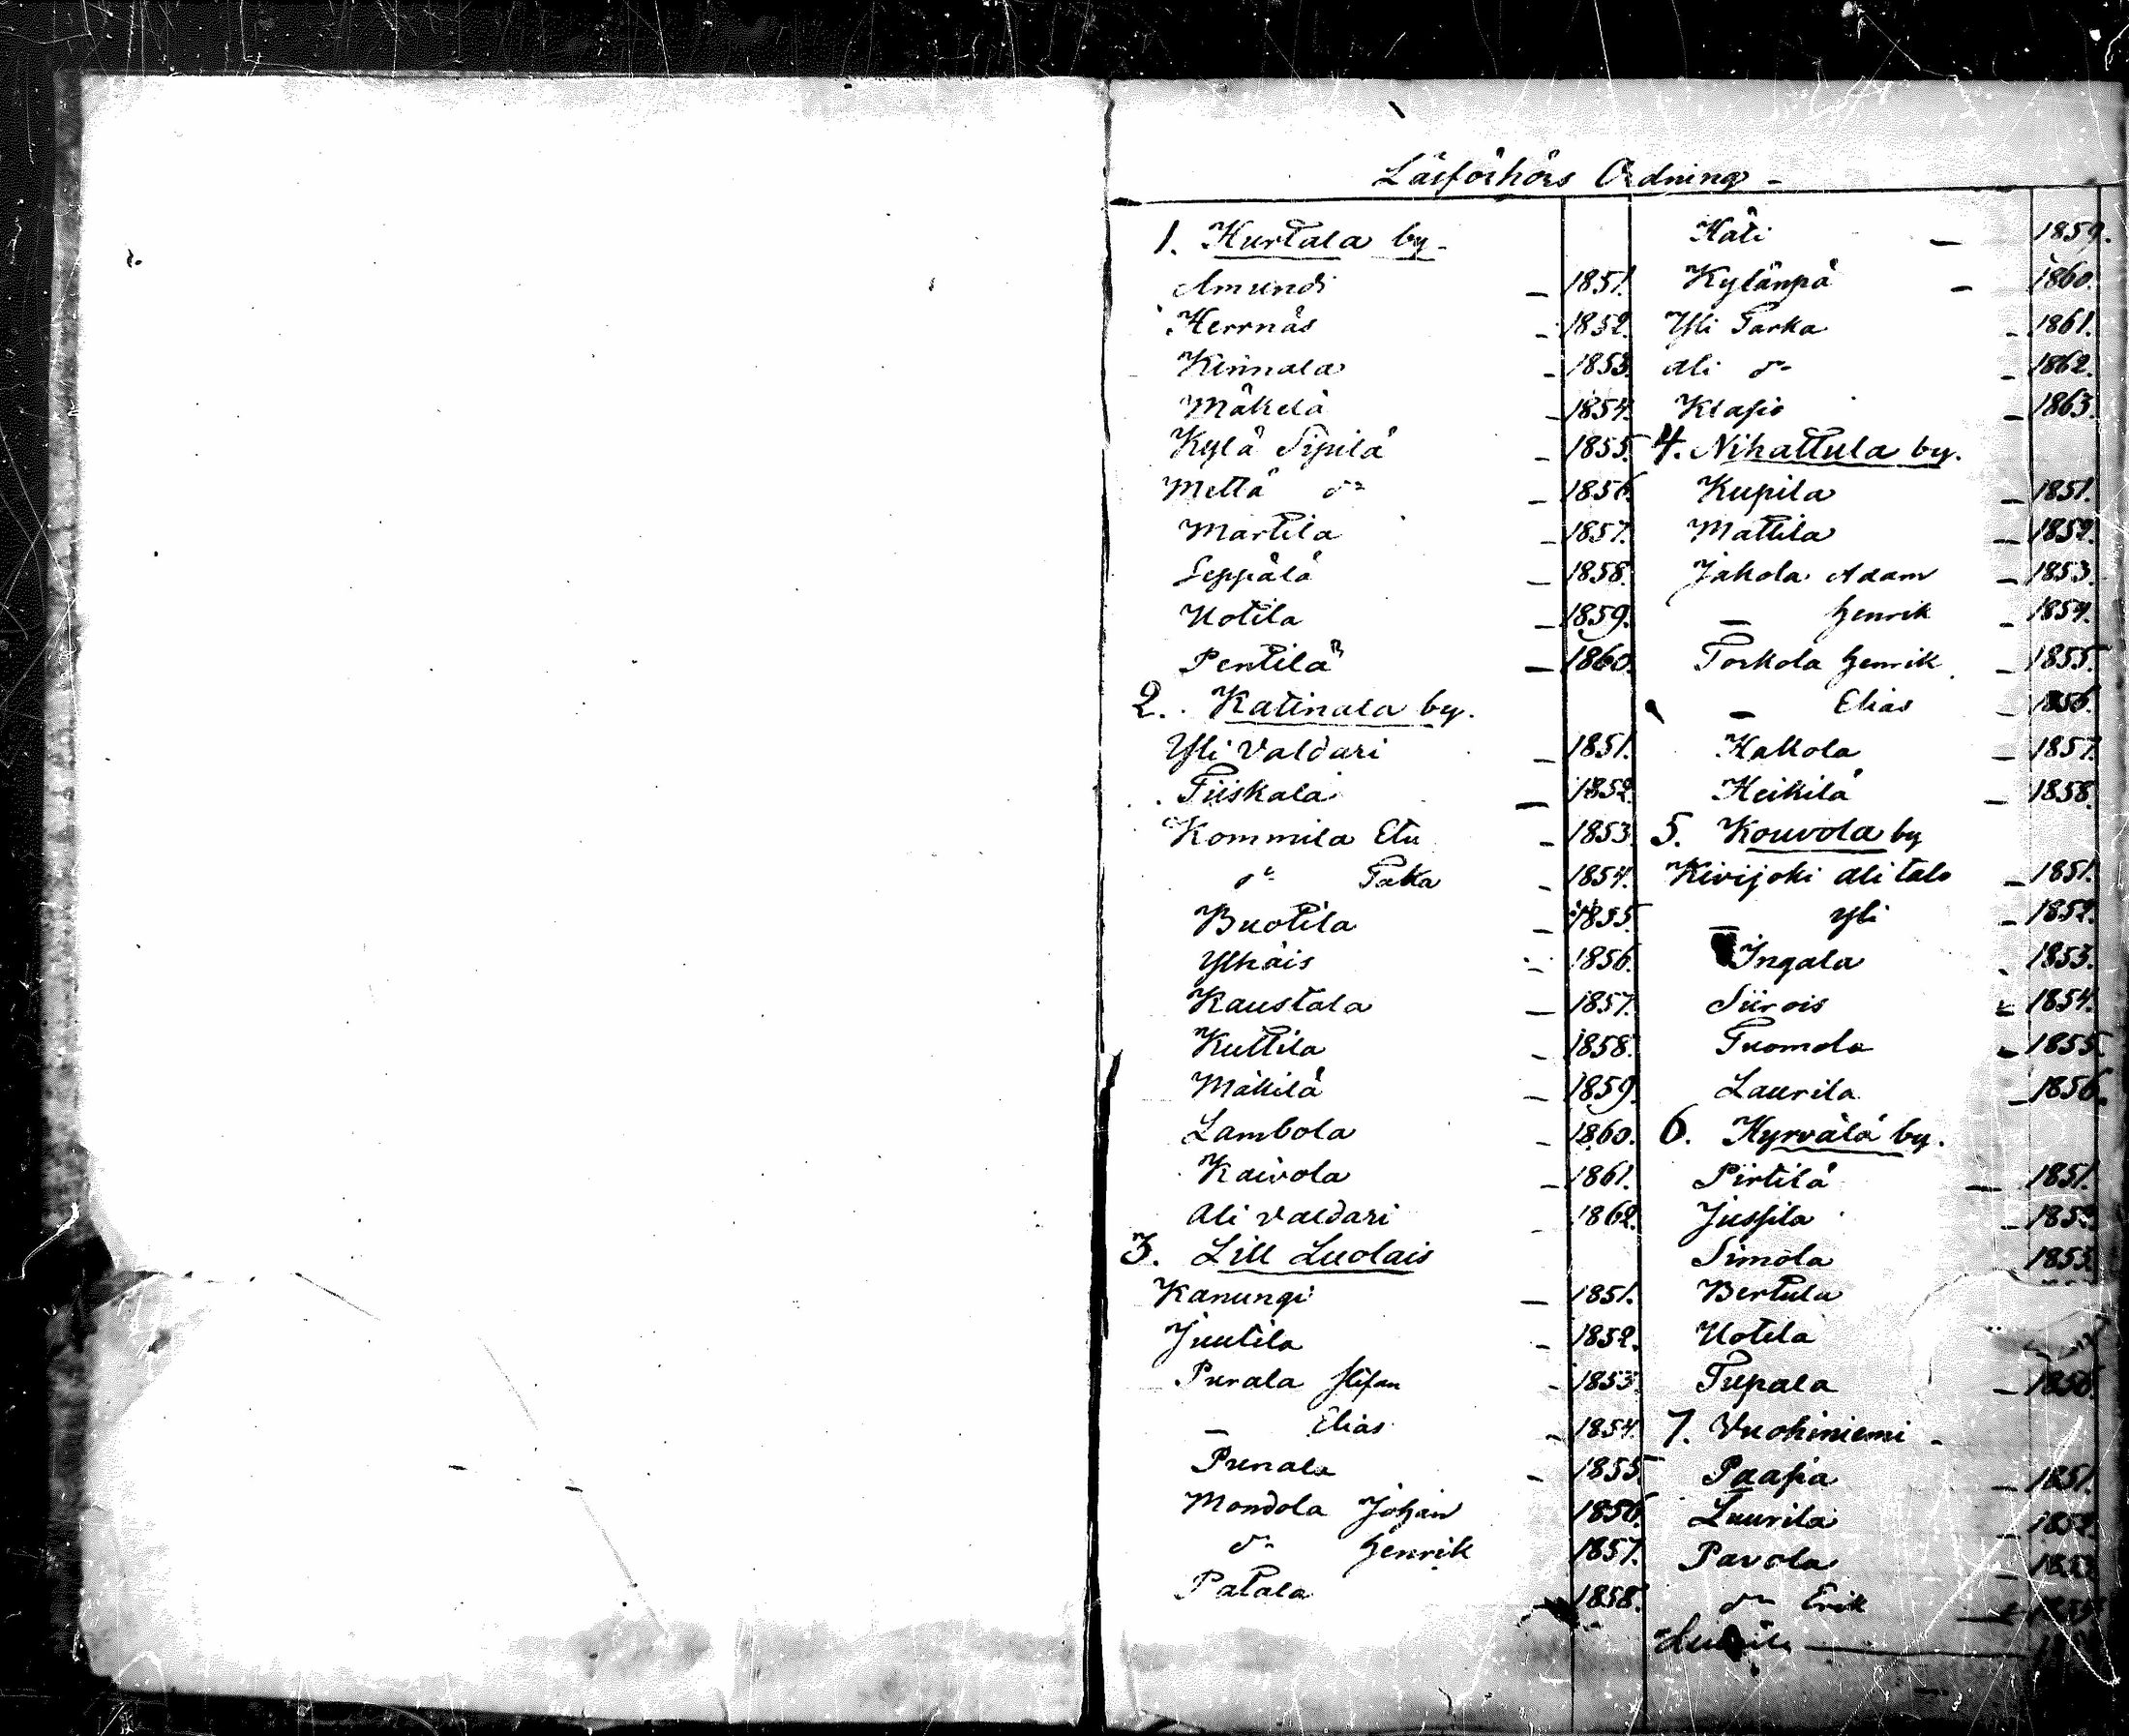 Läsförhörs Ordning -
1. Hurtala by -
Amundi - 1851.
Herrnäs - 1852.
Kinnala - 1853.
Mäkelä - 1854.
Kylä Sipilä - 1855.
Mettä do - 1856.
Martila - 1857.
Seppälä - 1858.
Uotila - 1859.
Pentilä - 1860.
2. Katinala by.
Yli Valdari - 1851.
Tiiskala - 1852.
Kommila Etu - 1853.
do Taka - 1854.
Buotila - 1855.
Ylhäis - 1856.
Kaustala - 1857.
Kuttila - 1858.
Mäkilä - 1859.
Lambola - 1860.
Kaivola - 1861.
Ali Valdari - 1862.
3. Lill Luolais
Kanungi - 1851.
Juutila - 1852.
Purala Stefan - 1853.
- Elias - 1854.
Punala - 1855.
Mondola Johan 1856.
do Henrik 1857.
Patala - 1858.
Käti - 1859.
Kylänpä - 1860.
Yli Tarka - 1861.
Ali do - 1862.
Klasio - 1863.
4. Nihattula by.
Kupila - 1851.
Mattila - 1852.
Jakola Adam - 1853.
- Henrik - 1854.
Torkola Henrik - 1855.
- Elias - 1856.
Kakola - 1857.
Heikilä - 1858.
5. Kouvola by
Kivijoki Ali talo - 1851.
- Yli - 1852.
Ingala - 1853.
Siirois - 1854.
Tuomola - 1855.
Laurila - 1856.
6. Hyrvälä by.
Pirtilä - 1851.
Jussila - 1852.
Simola 1853.
Bertula
Uotila
Tupala - 1856.
7. Vuohiniemi -
Paasia - 1851.
Laurila - 1852.
Pavola - 1853.
do Erik - 1854.